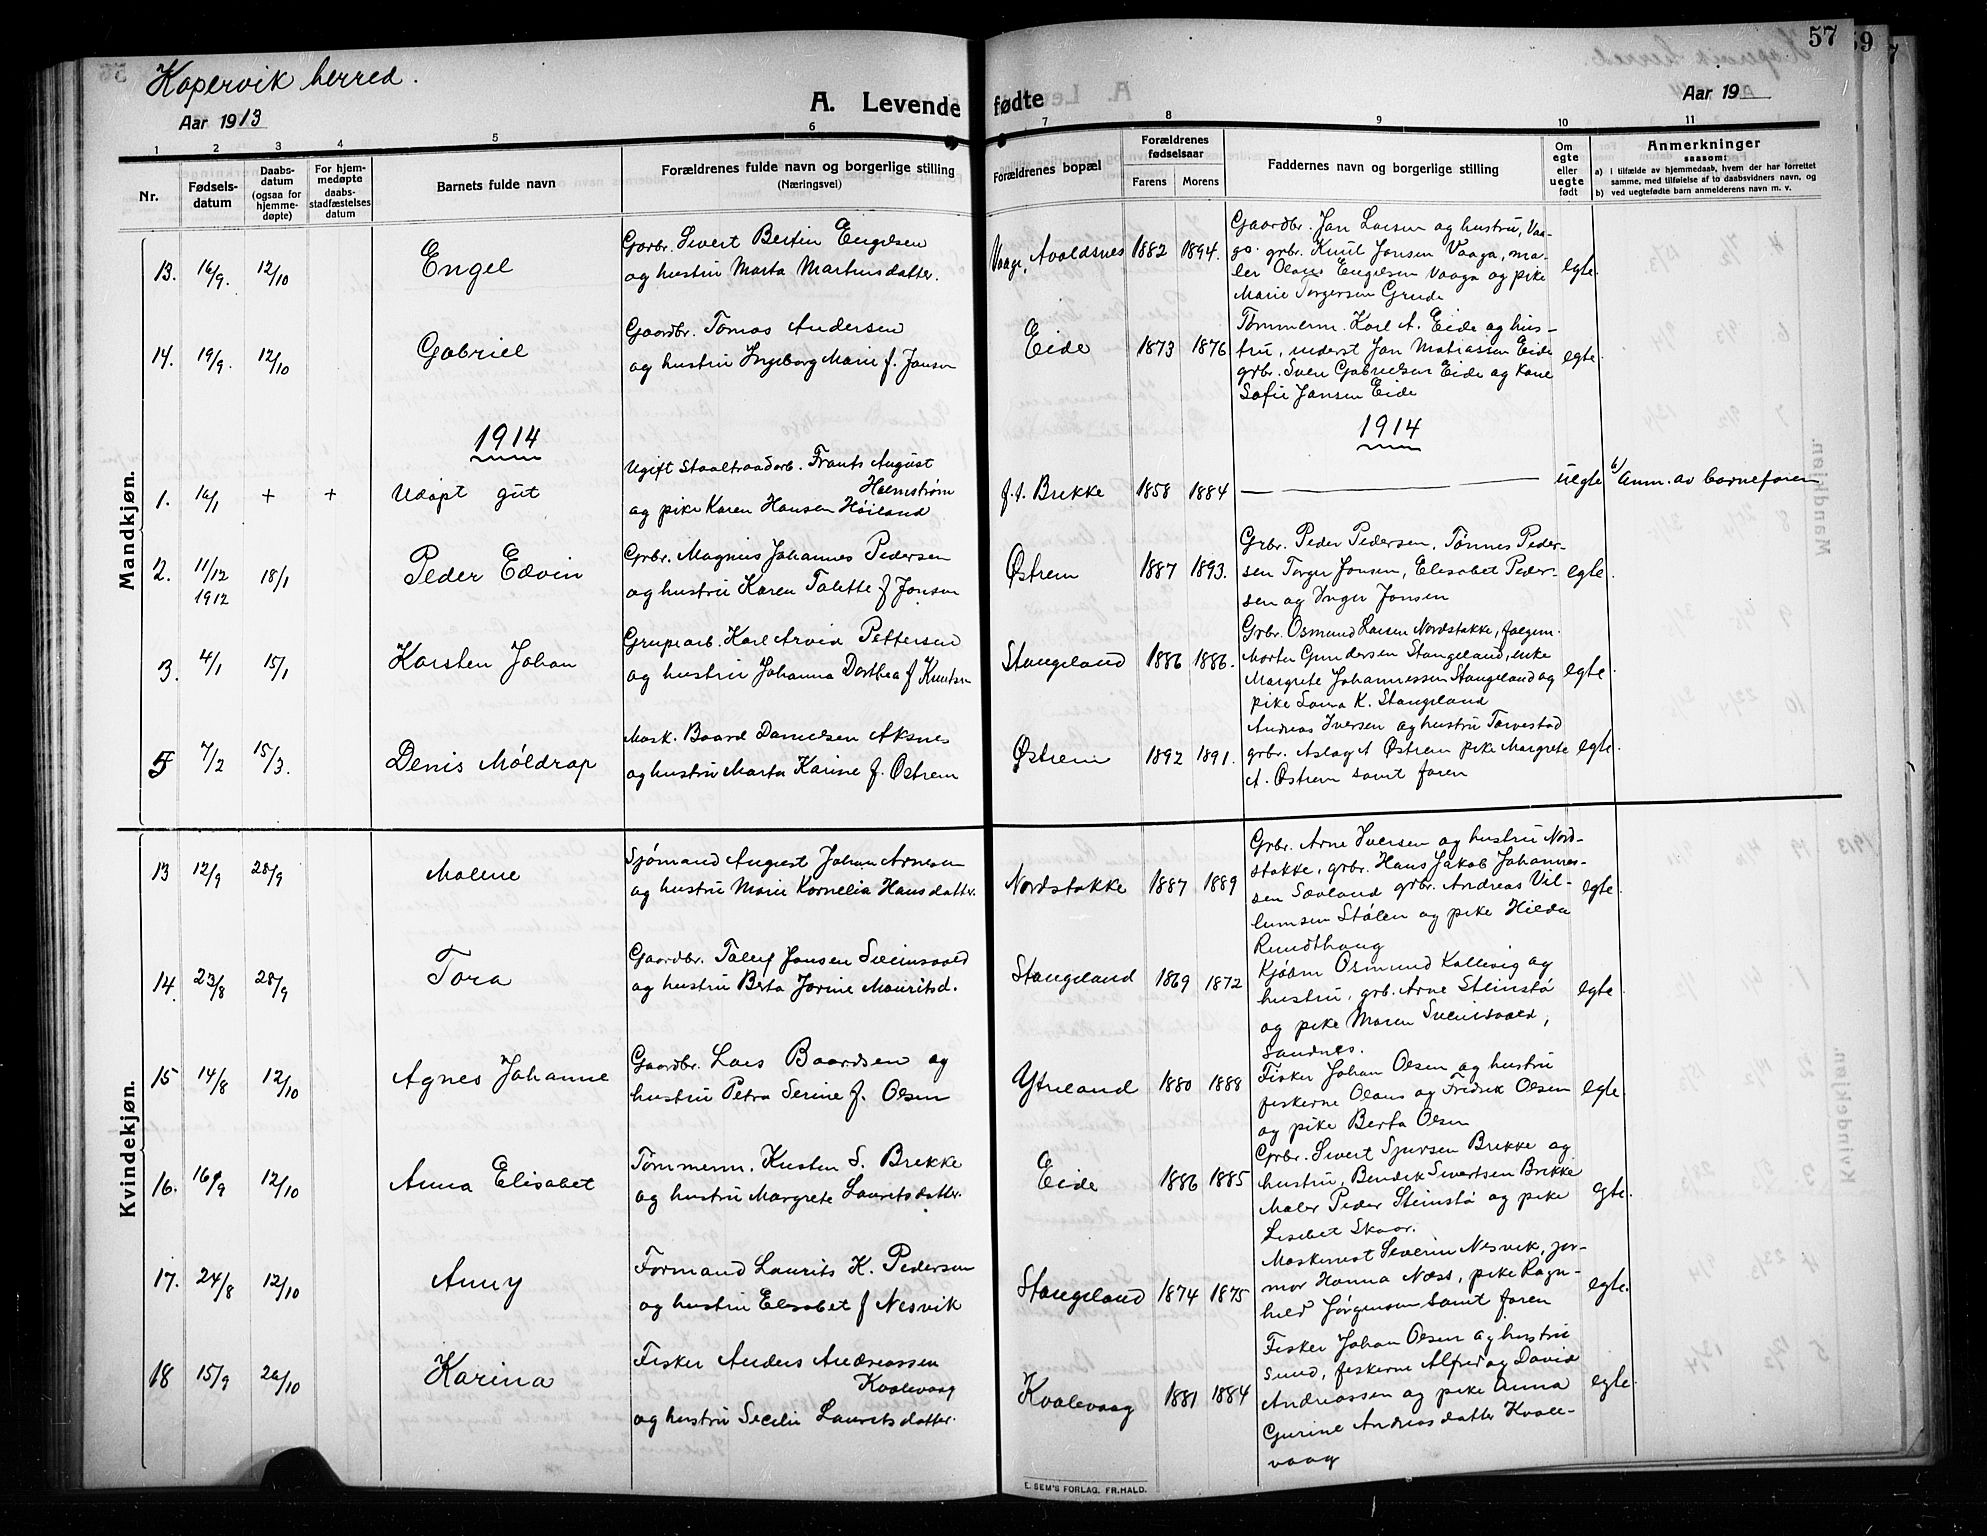 Kopervik herred.
Aar 1913
A. Levende fødte
Aar 19
57
59
1 2 3 4 5 6 7 8 9 10 11
Nr.
Fødsels-
datum
Daabs-
datum
(ogsaa for
hjemme-
døpte)
For hjem-
medøpte
daabs-
stadfæstelses
datum
Barnets fulde navn
Forældrenes fulde navn og borgerlige stilling
(Næringsvei)
Forældrenes bopæl
Forældrenes
fødselsaar
Farens Morens
Faddernes navn og borgerlige stilling
Om
egte
eller
uegte
født
Anmerkninger
saasom:
a) I tilfælde av hjemmedaab, hvem der har forrettet
samme, med tilføielse af to daabsvidners navn, og
b) ved uegtefødte barn anmelderens navn m. v.
Mandkjøn.
13. 16/9. 12/10 Engel
Gaardbr. Sivert Bertin Engelsen
og hustru Marta Martinsdatter.
Vaage, Avaldsnes 1882 1894.
Gaardbr. Jan Larsen og hustru, Vaa-
ga. grbr. Knut Jonsen Vaaga, ma-
ler Olaus Engelsen Vaaga og pike
Marie Torgersen Grude
egte.
14. 19/9. 12/10 Gabriel
Gaardbr. Tomas Andersen
og hustru Ingeborg Marie f. Jansen
Eide 1873 1876
Tømmerm. Karl A. Eide og hus-
tru, underst Jan Matiassen Eide
grbr. Sven Gabrielsen Eide og kone
Sofie Jansen Eide
egte.
1914
1914
1. 16/1 + + Udøpt gut
Ugift Staaltraadarb. Frants August
Holmstrøm
og pike Karen Hansen Høiland
f.t. Brekke 1858 1884 —
uegte b/ Anm. av barnefaren
2. 11/12
1912
18/1 Peder Edvin
Grbr. Magnus Johannes Pedersen
og hustru Karen Talette f Jonsen
Østrem 1887 1893.
Grbr. Peder Pedersen, Tønnes Peder-
sen Torger Jonsen, Elisabet Peder-
sen og Inger Jonsen
egte.
3. 4/1 15/1 Karsten Johan
Grupearb. Karl Arvid Pettersen
og hustru Johanna Dorthea f Knutsen
Stangeland 1886 1886.
Grbr. Osmund Larsen Nordstokke, jolgem.
Morten Gundersen Stangeland, enke
Margrete Johannessen Stangeland og
pike Laura K. Stangeland
egte.
5 7/2 15/3. Denis Møldrap
Mask. Baard Danielsen Aksnes
og hustru Marta Karine f. Østrem
Østrem 1892 1891.
Andreas Iversen og hustru Torvestad
grbr. Aslag A Østrem pike Margrete
A. Østrem samt faren
egte.
Kvindekjøn.
13 12/9 28/9 Malene
Sjømand August Johan Arnesen
og hustru Marie Kornelia Hansdatter.
Nordstokke 1887 1889
Grbr. Arne Iversen og hustru Nord-
stokke, grbr. Hans Jakob Johannes-
sen Sævland grbr. Andreas Vil-
lumsen Stølen og pike Hilda
Rundhaug
egte.
14. 23/8 28/9 Tora
Gaardbr. Taluf Jansen Sveinsvold
og hustru Berta Jorine Mauritsd.
Stangeland 1869 1872
Kjøbm Osmund Kallevig og
hustru, grb. Arne Steinstø
og pike Maren Sveinsvold,
Sandnes.
egte.
15 14/8 12/10 Agnes Johanne
Gaardbr. Lars Baardsen og
hustru Petra Serine f. Olsen
Ytreland 1880 1888
Fisker Johan Olsen og hustru
fiskerne Olaus og Fredrik Olsen
og pike Berta Olsen
egte.
16. 16/9 12/10 Anna Elisabet
Tømmerm. Kristen S. Brekke
og hustru Margrete Lauritsdatter.
Eide 1886 1885
Grbr. Sivert Sjursen Brekke og
hustru, Bendik Sivertsen Brekke
Maler Peder Steinstø og pike
Lisebet Skaar.
egte.
17. 24/8 12/10 Anny
Formand Laurits K. Pedersen
og hustru Elisabet f Nesvik
Stangeland 1874 1875
Maskinist Severin Nesvik, jor-
mor Hanna Næss, pike Ragn-
hild Jørgensen samt faren
egte.
18 15/9 26/10 Karina
Fisker Anders Andreassen
Kvalevaag
og hustru Secilie Lauritsdatter.
Kvalevaag 1881 1884
Fisker Johan Olsen og hustru
Sund, fiskerne Alfred og David
Andreassen og pike Anna
Gurine Andreasdatter Kvale-
vaag
egte.
E. SEM'S FORLAG. FR.HALD.